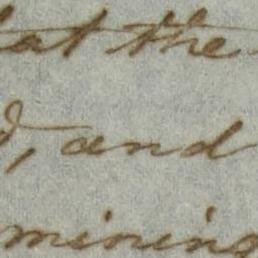 at the
, and
mining